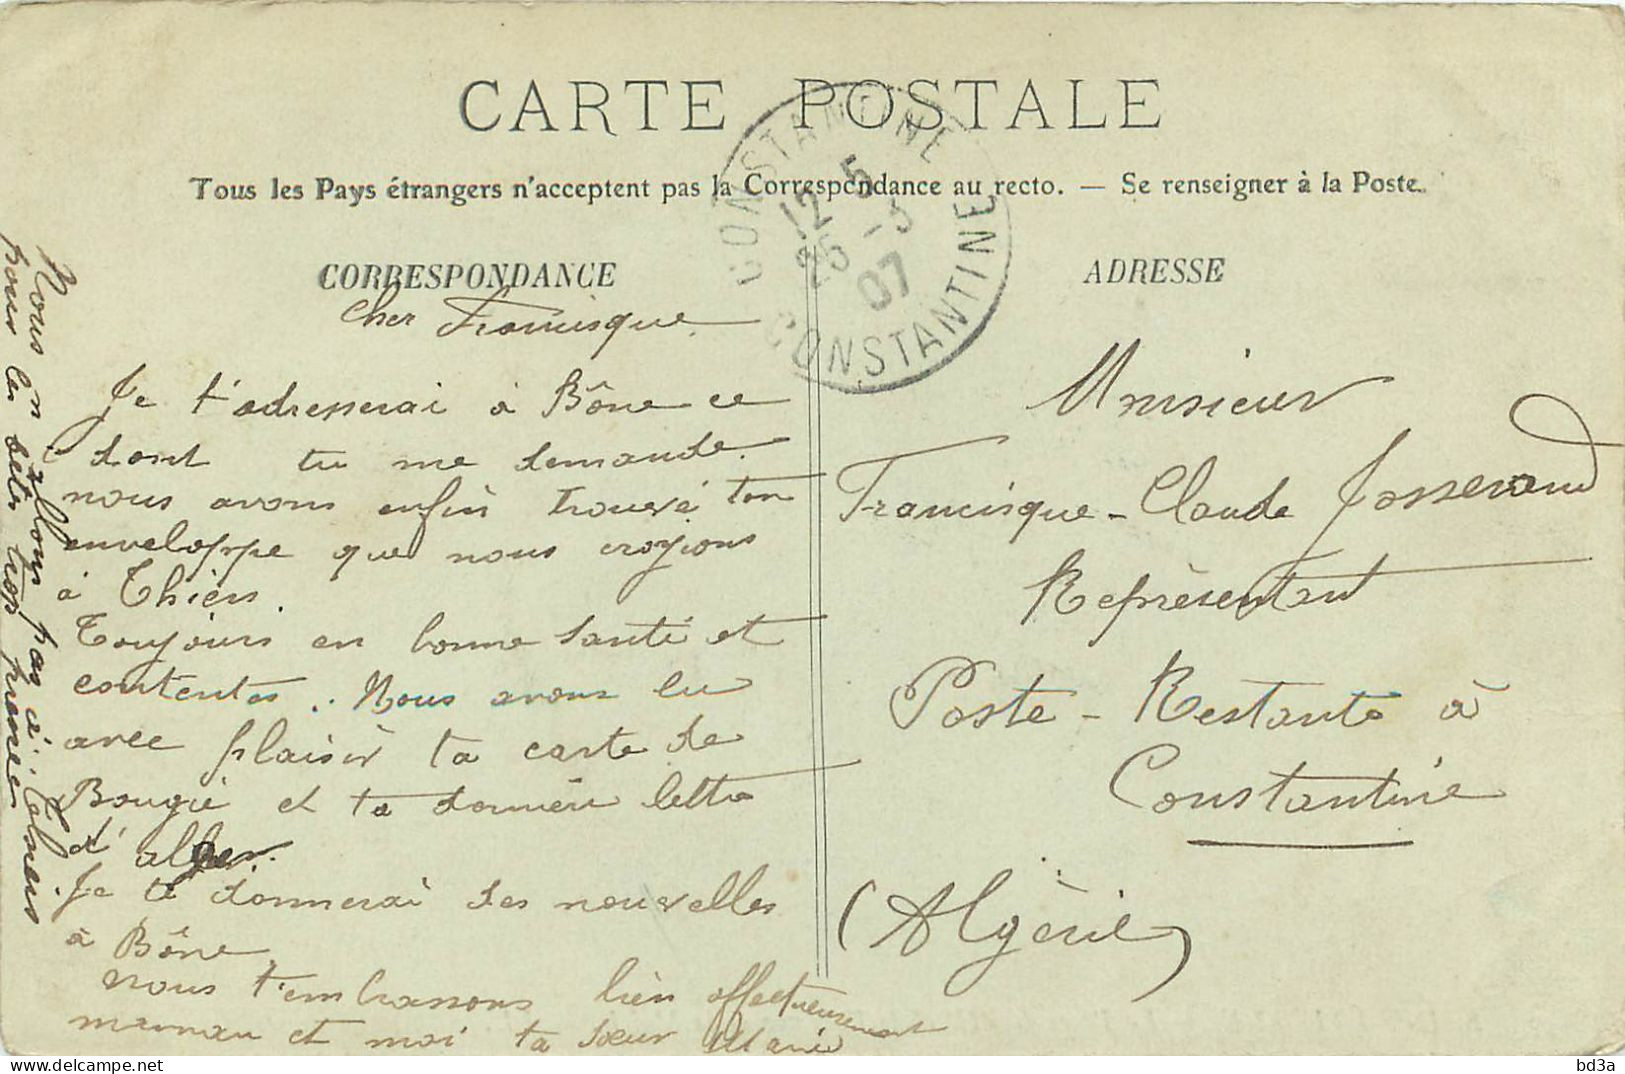 CARTE POSTALE
Tous les Pays étrangers n'acceptent pas la Correspondance au recto. — Se renseigner à la Poste.
CONSTANTINE
12 5
25 -3
07
CONSTANTINE
CORRESPONDANCE
Cher Francisque
Je t'adresserai à Bône ce
dont tu me demande.
nous avons enfin trouvé ton
enveloppe que nous croyions
à Thiers.
Toujours en bonne santé et
contentes. Nous avons lu
avec plaisir ta carte de
Bougie et ta dernière lettre
d'alger.
Je te donnerai des nouvelles
à Bône.
nous t'embrassons bien affectueusement
maman et moi ta sœur Marie
Nous n'allons pas à
pour les trop
ADRESSE
Monsieur
Francisque-Claude Josserand
Représentant
Poste-Restante à
Constantine
(Algérie)
bd3a